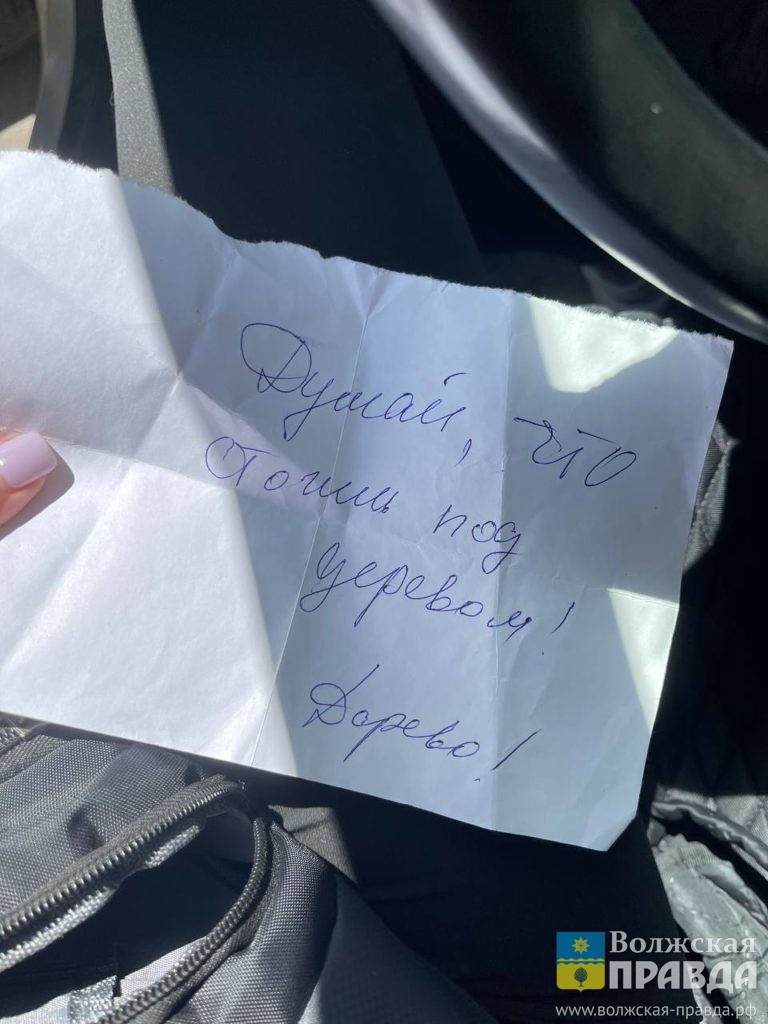 Думай, что
стоишь под
деревом!
Дарево!
Волжская
ПРАВДА
www.волжская-правда.рф